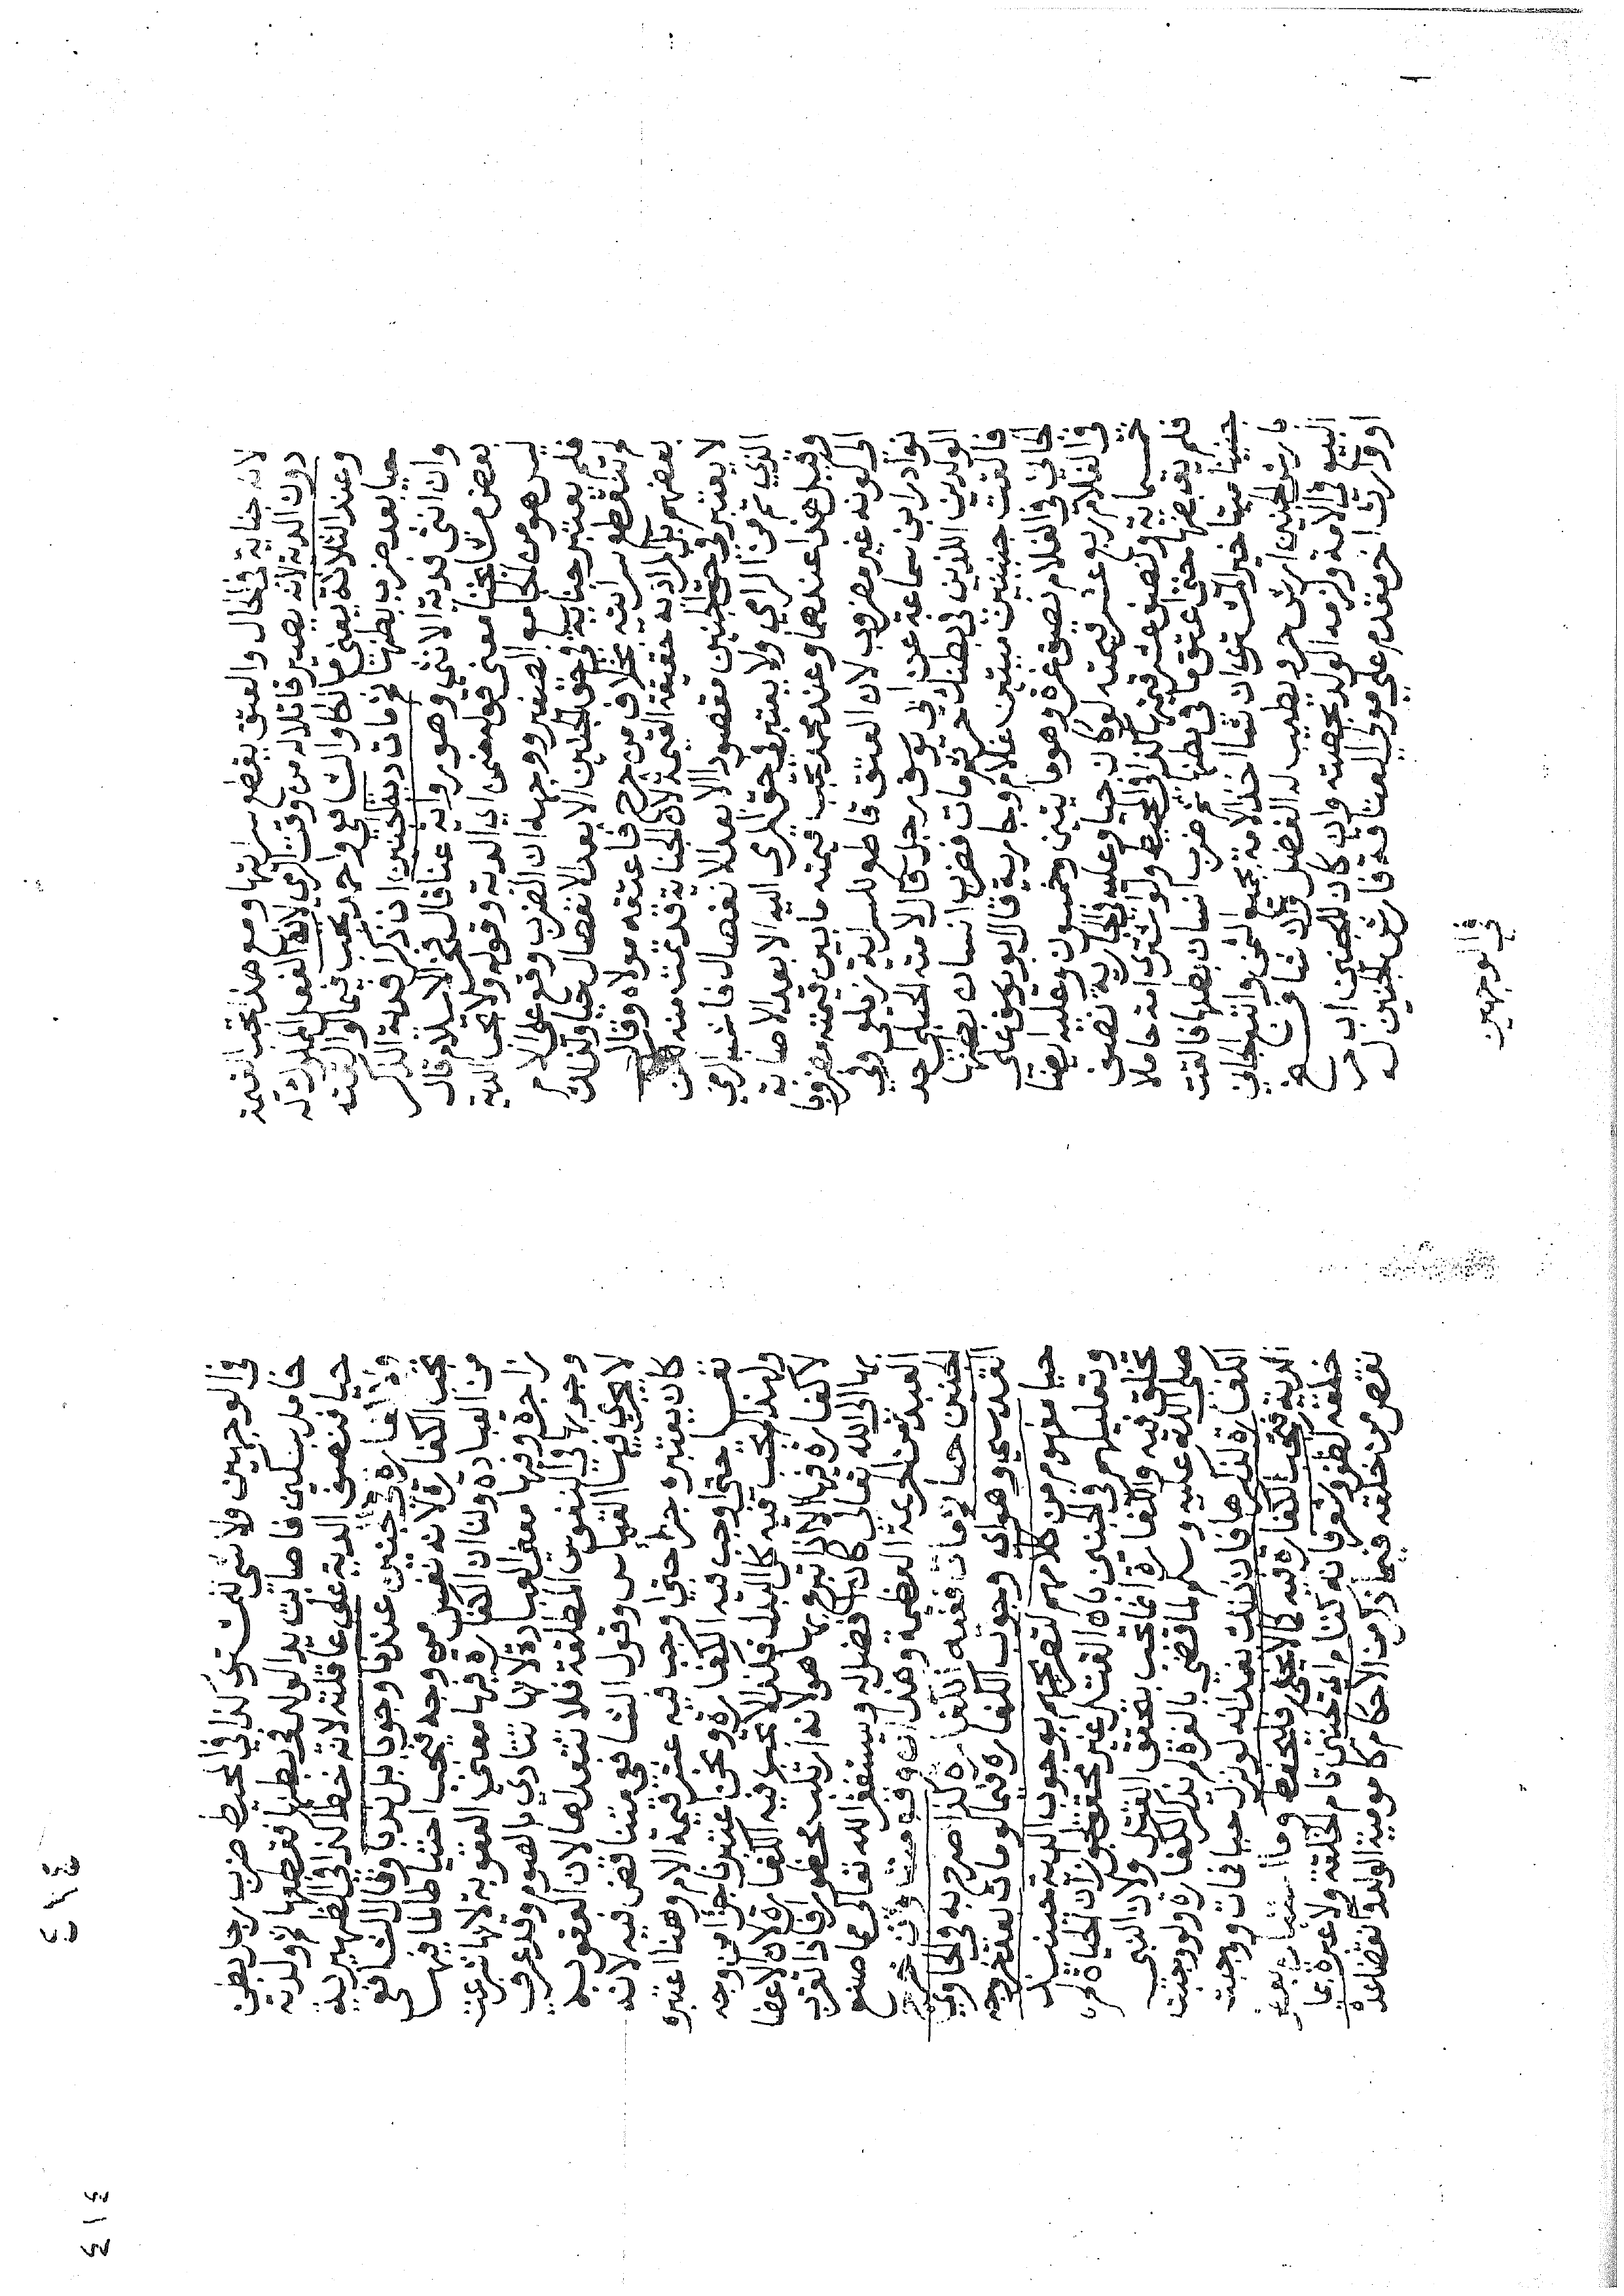 لانه جناية في الحال والعتق يقطع سرايتها ومع هذا تجب القيمة
دون الدية لانه يصير قاتلا له من وقت الرمي لانه الفعل المملوك له
وعند الثلاثة يعني مالكا والشافعي واحمد يجب فيما لو القته
حيا بعد ضرب بطنها ثم مات دية الجنين ان ذكرا فدية الذكر
وان انثى فدية الانثى وهو رواية عنا قال فخر الاسلام قال
بعض مشايخنا معنى قوله ضمن اي الدية وقوله ولا تجب الدية
ليس هو من الجامع الصغير ووجهه ان الضرب وقع على الام
فلم يعتبر جناية في حق الجنين الا بعد الانفصال حيا ولذلك
لم تنقطع سرايته بخلاف من جرح فاعتقه مولاه وقال
بعضهم بل المراد به حقيقة القيمة لان الجناية قد تمت منه لكن
لا يعتبر في حق الجنين مقصودا الا بعد الانفصال فاشبه الرمي
الذي تم من الرامي ولا يعتبر في حق المرمي اليه الا بعد الاصابة
وقيل هذا عندهما وعند محمد تجب قيمته ما بين قيمته مضروبا
الى كونه غير مضروب لان العتق قاطع للسراية زيلعي وفي
نوادر ابن سماعة عن ابي يوسف رجل قال لامته الحبلى احد
الولدين اللذين في بطنك حر ثم مات فضرب انسان بطنها
فالقت جنينين ميتين غلام وجارية قال ابو يوسف على
الجاني في الغلام نصف غرة وهو مايتين وخمسون وعليه ايضا
في الغلام ربع عشر قيمته لو كان حيا وعليه في الجارية نصف
خمسماية ونصف عشر قيمتها كذا في المحيط ولو اشترى امة حاملا
فلم يقبضها حتى اعتق ما في بطنها ثم ضرب انسان بطنها فالقت
جنينا ميتا خير المشتري ان شا اخذ الامة بجميع الثمن واتبع الجاني
بارش الجنين ارش حر ويطيب له الفضل وان شا فسخ
البيع في الامة ولزمه الولد بحصته وان كان للجنين اب حر
او وارث اخر مقدم على مولى العتاقة فارش الجنين له
في الوجهين
في الوجهين ولا شي للمشتري كذا في المحيط ضرب رجل بطن
حامل بسكين فاصابت يد الولد في بطنها فقطعها ثم ولدته
حيا فنصف الدية على عاقلته لانه خطا كذا في الظهيرية
ولا كفارة في جنين عندنا وجوبا بل ندبا وقال الشافعي
تجب الكفارة لانه نفس من وجه فتجب احتياطا لما فيها
من العبادة ولنا ان الكفارة فيها معنى العقوبة لانها شرعت
زاجرة وفيها معنى العبادة لانها تتادي بالصوم وقد عرف
وجوبها في النفوس المطلقة فلا تتعداها لان العقوبة
لا يجري فيها القياس وقول الشافعي متناقض فيه لانه
كان يعتبره جزا حتى اوجب فيه عشر قيمة الام وهنا اعتبره
نفسا حتى اوجب فيه الكفارة ونحن اعتبرناه جزا من وجه
ولهذا لم يجب فيه كل البدل فكذا لا تجب فيه الكفارة لان الاعضا
لا كفارة فيها الا اذا تبرع بها هو لانه ارتكب محظورا فاذا تقرب
بها الى الله تعالى كان افضل له ويستغفر الله تعالى مما صنع
العبد من الجريمة العظيمة وهذا ان وقع ميتا وان خرج
الجنين حيا ثم مات ففيه الكفارة كذا صرح به في الحاوي
القدسي وهو اي وجوب الكفارة فيما لو مات بعد خروجه
حيا مفهوم من كلامهم لتصريحهم بوجوب الدية حينئذ
وتعليلهم في الجنين بان القتل غير محقق لجواز ان الحياة لم
تخلق فيه والكفارة انما تجب بتحقق القتل ولان النبي
صلى الله عليه وسلم لما قضى بالغرة لم يذكر الكفارة ولو وجبت
الكفارة لذكرها فان ذلك يفيد انه لو نزل حيا فمات ووجبت
الدية تجب الكفارة فيه كما لا يخفى فليحفظ وما استبان بعض
خلقه كظفر وشعر فانه كتام اي كجنين تام الخلقة ولا عبرة بما
نقص من خلقه فيما ذكر من الاحكام كامومية الولد وانقضا عدة
٤١٤
٤١٤